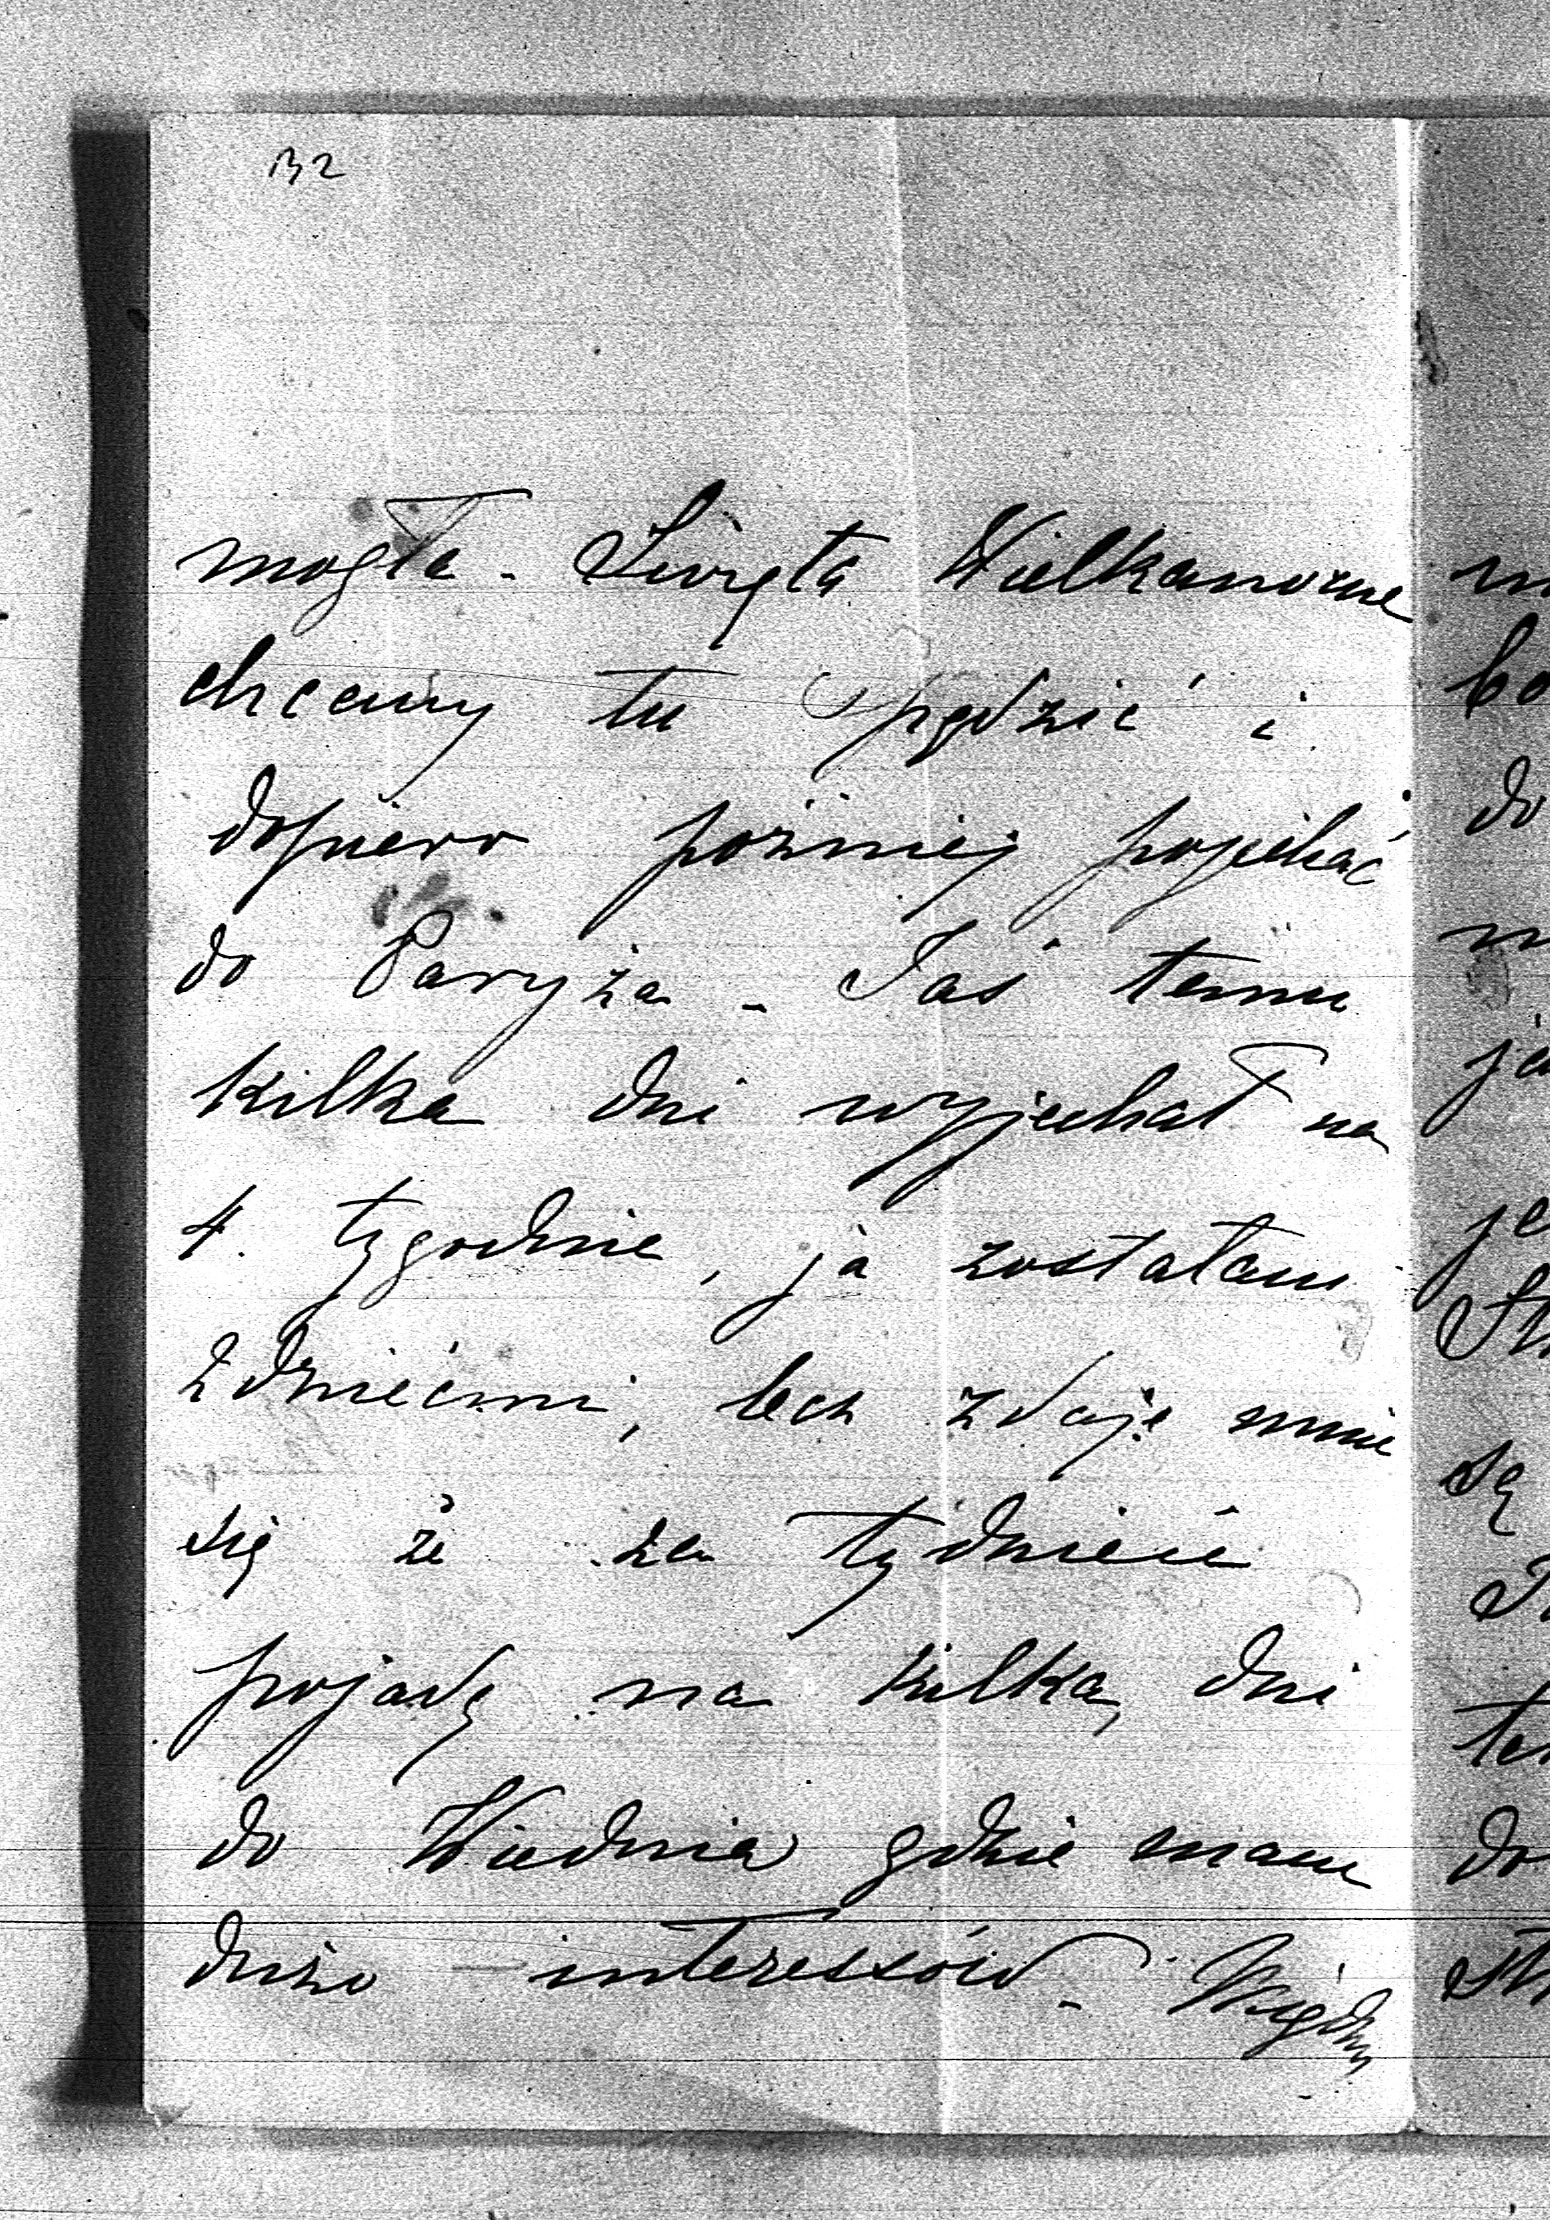 132
mogła - Święta Wielkanocne
chcemy tu spędzić i
dopiero pożniej pojechać
do Paryża - Jaś temu
kilka dni wyjechał na
4. tygodnie, ja zostałam
z dziećmi, lecz zdaje mnie
się że za tydzień
pojadę na kilka dni
do Wiednia gdzie mam
dużo interessów -